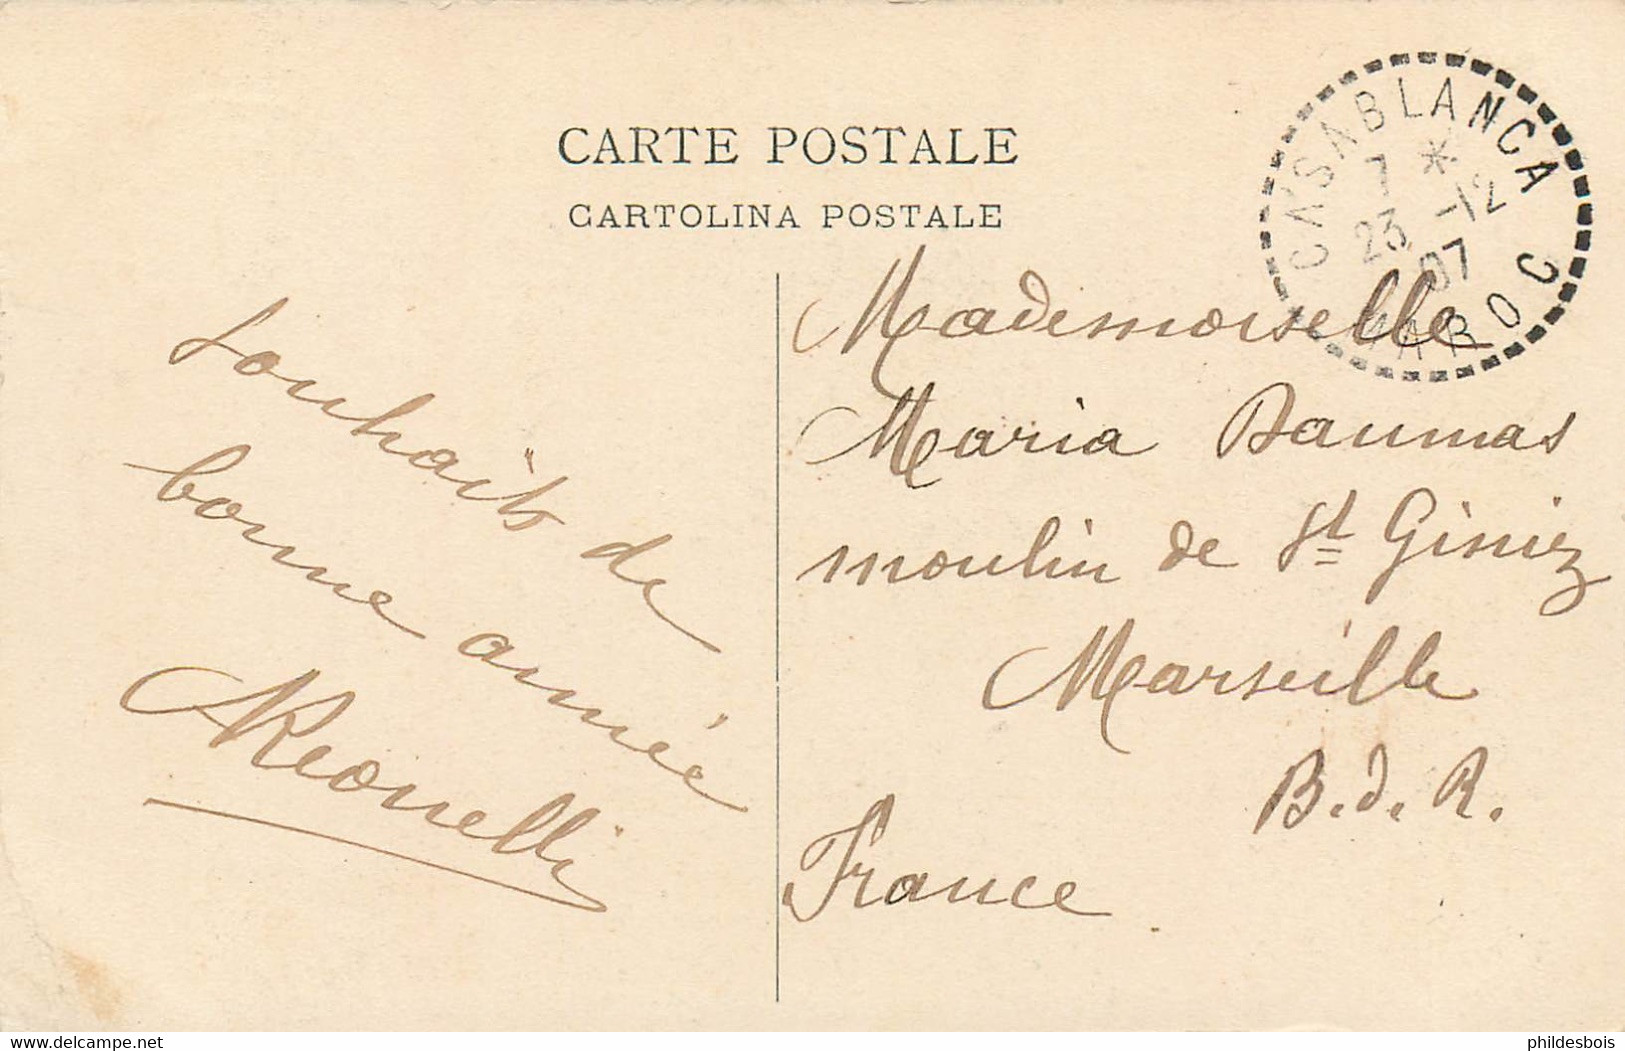 CARTE POSTALE
CARTOLINA POSTALE
CASABLANCA
7 *
23 -12
07
MAROC
Souhaits de
bonne année
Mademoiselle
Maria Daumas
moulin de St Giniez
Marseille
B.d.R.
France
delcampe.net
phildesbois